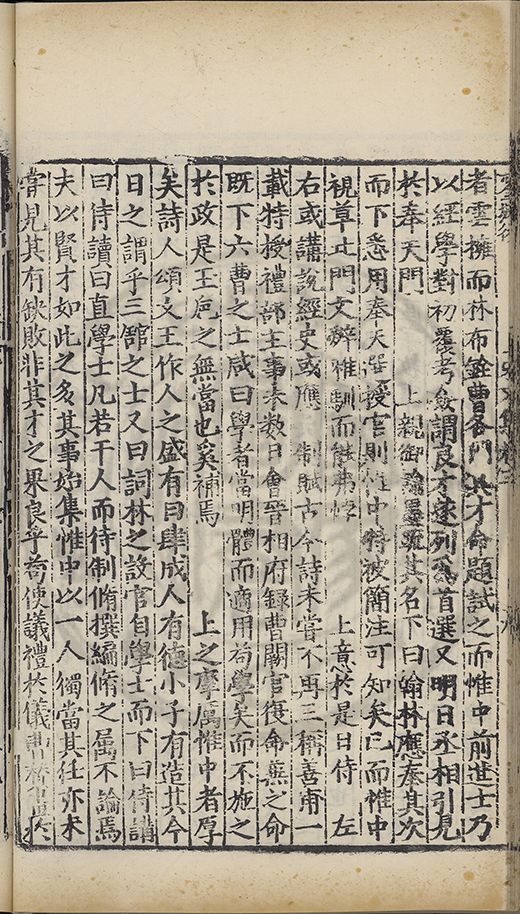 者雲擁而林布銓曹各門異才命題試之而惟中前進士乃
以經學對初覆考僉謂良才遂列爲首選又明日丞相引見
於奉天門　上親御翰墨疏其名下曰翰林應奉其次
而下悉用奉天選授官則惟中特被簡注可知矣已而惟中
視草北門文辭雅馴而能稱　上意於是日侍　左
右或講說經史或應　制賦古今詩未嘗不再三稱善甫一
載特授禮部主事未數日會晉相府錄曹闕官復命兼之命
旣下六曹之士咸曰學者當明體而適用苟學矣而不施之
於政是玉巵之無當也奚補焉　上之摩厲惟中者厚
矣詩人頌文王作人之盛有曰肆成人有德小子有造其今
日之謂乎三館之士又曰詞林之設官自學士而下曰侍講
曰侍讀曰直學士凡若干人而待制脩撰編脩之屬不論焉
夫以賢才如此之多其事始集惟中以一人獨當其任亦未
嘗見其有缺敗非其才之果良乎苟使議禮於儀曹